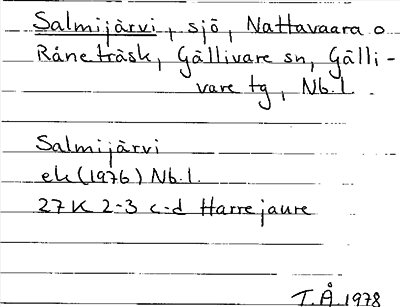 Salmijärvi, sjö, Nattavaara o
Råneträsk, Gällivare sn, Gälli-
vare tg, Nb.l.
Salmijärvi
ek (1976) Nb.l.
27K 2-3 c-d Harrejaure
T.Å. 1978